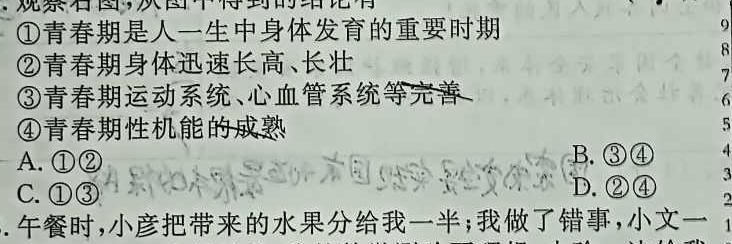 . 观察右图,从图中得到的结论有
①青春期是人一生中身体发育的重要时期
②青春期身体迅速长高、长壮
③青春期运动系统、心血管系统等完善
④青春期性机能的成熟
A. ①②
B. ③④
C. ①③
D. ②④
. 午餐时,小彦把带来的水果分给我一半;我做了错事,小文一
9
8
7
6
5
4
3
2
1